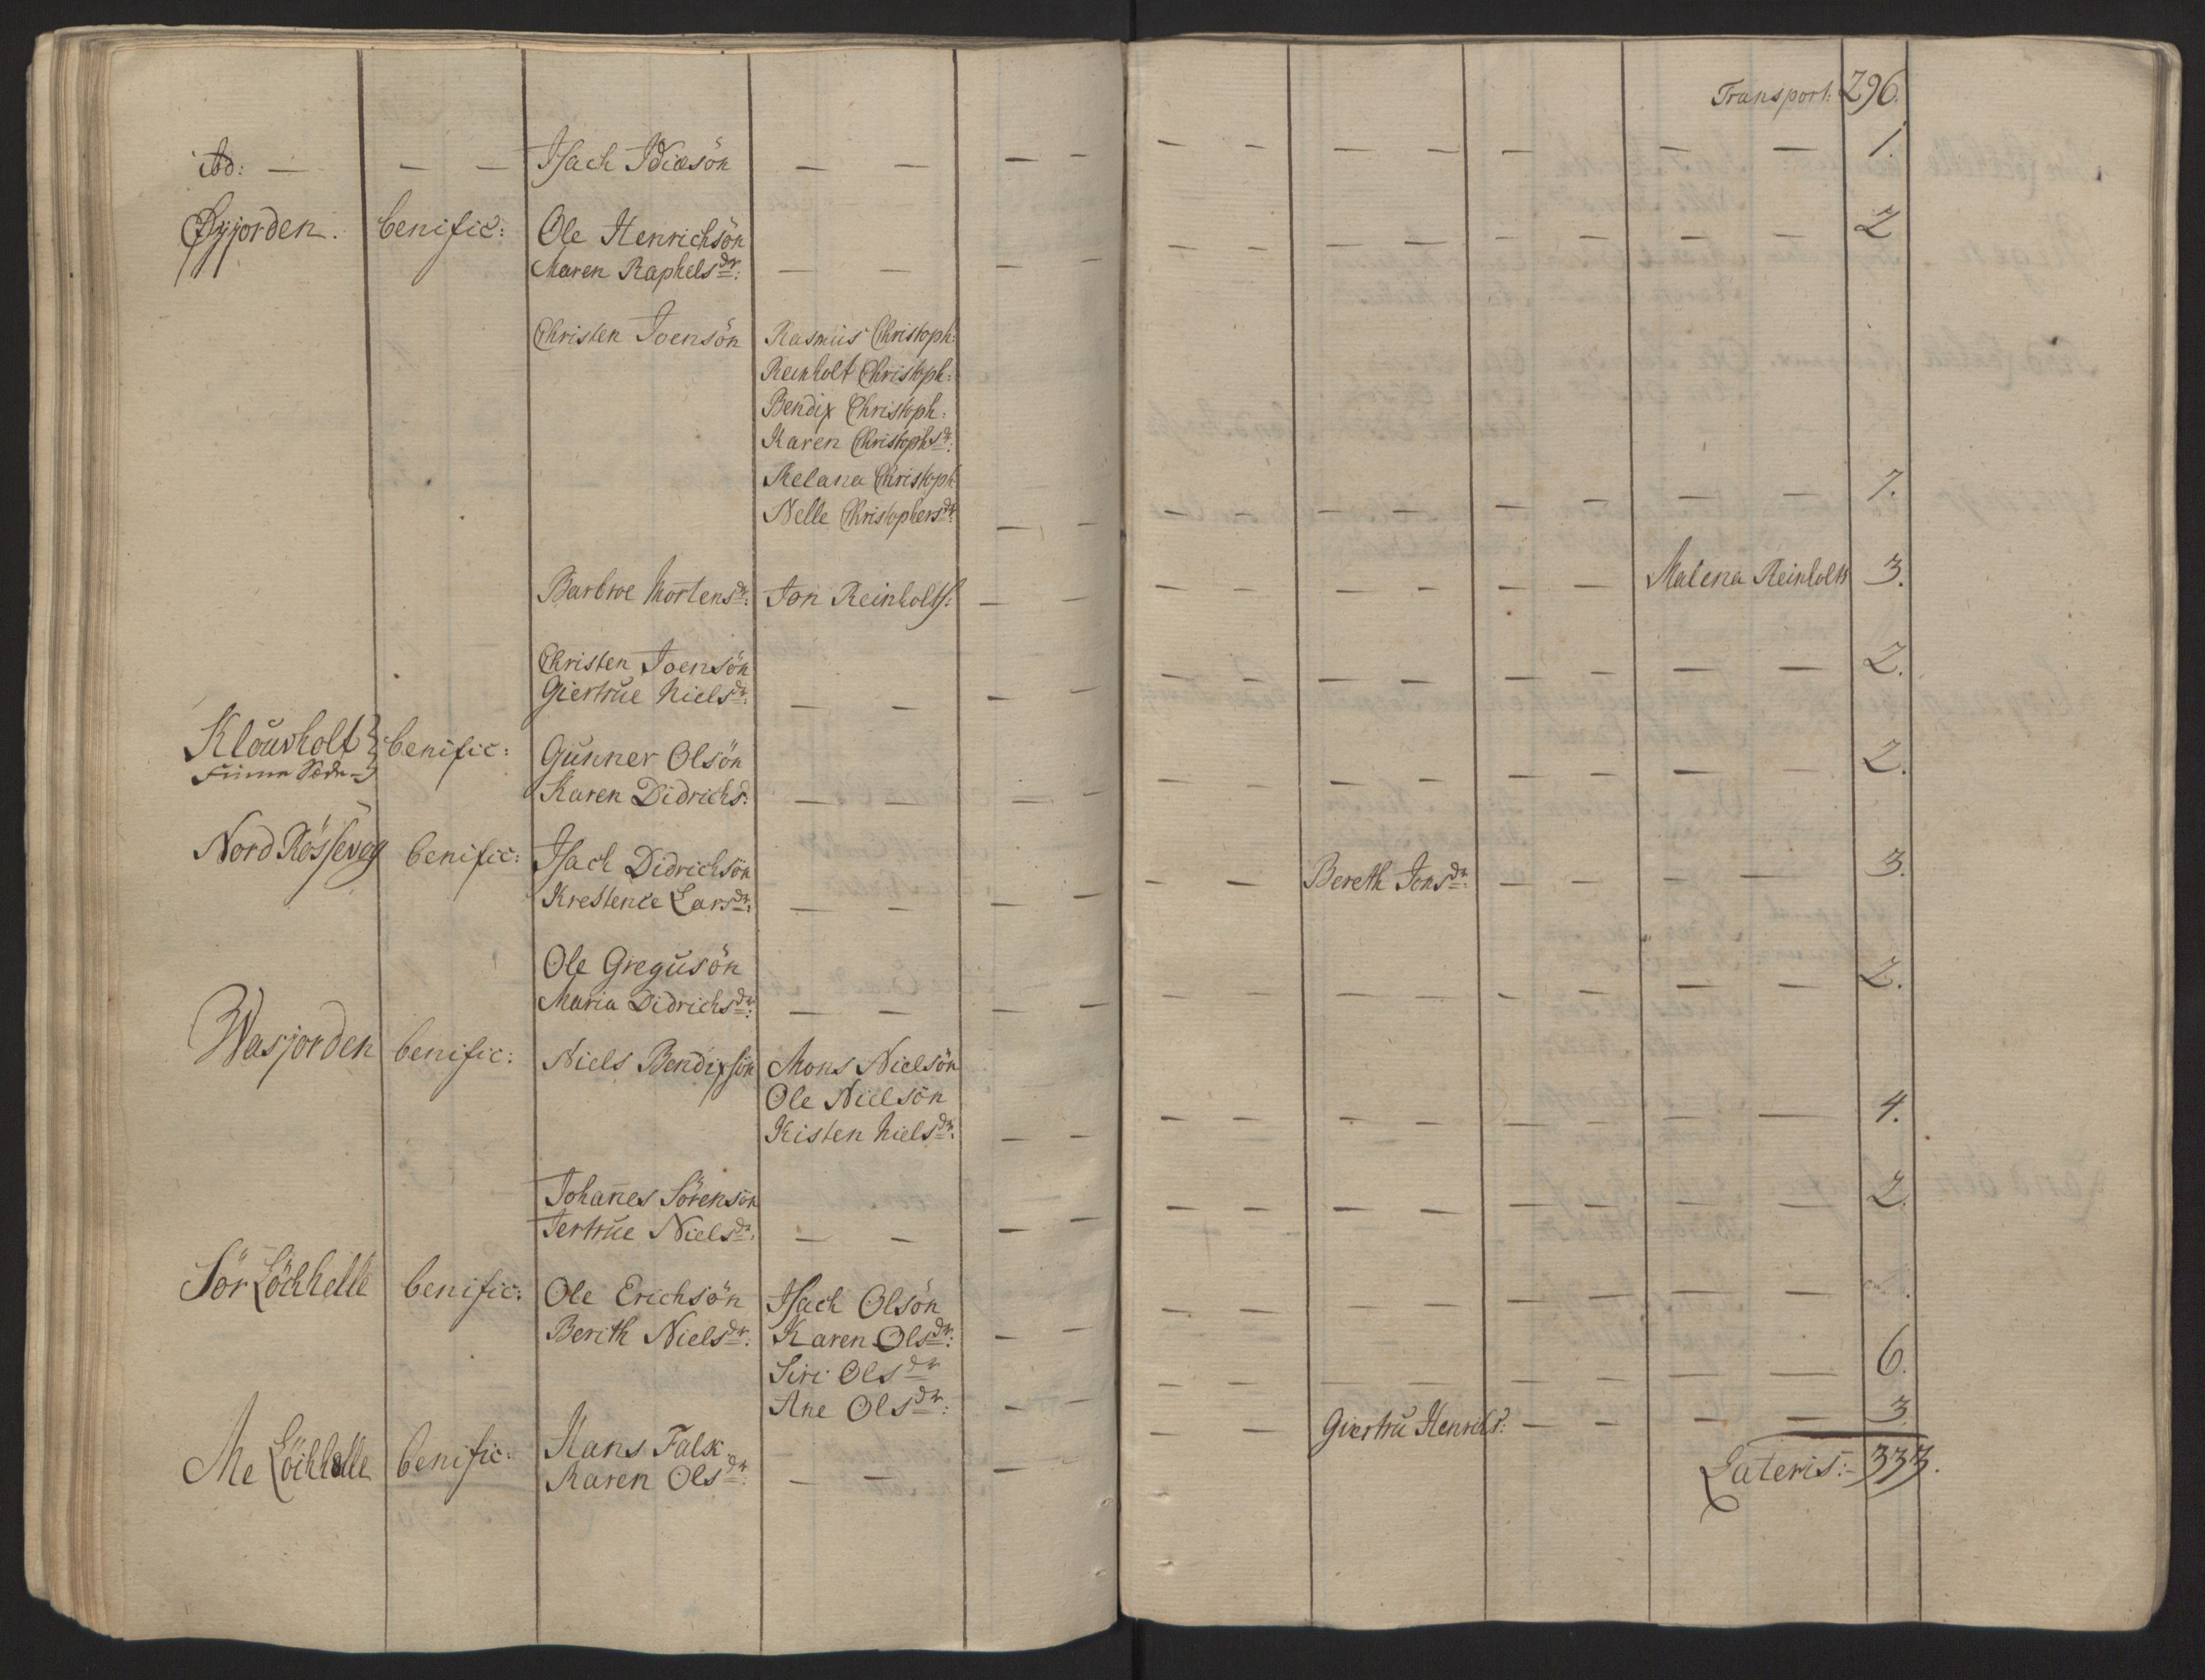 Transport: 296.
ibd: — — — Isach Idiasön — — — — — — — — — — — — 1.
Øyjorden. benific: Ole Henrichsön
Maren Raphelsdr: — — — — — — — — — — — — 2
Christen Joensön Rasmus Christoph:
Reinholt Christoph:
Bendix Christoph:
Karen Christophsdr:
Melana Christoph:
Nelle Christophersdr: — — — — — — — — — — 7.
Barbroe Mortensdr: Jon Reinholtss: — — — — — — — — Malena Reinholts 3.
Christen Joensön
Giertrue Nielsdr: — — — — — — — — — — — — 2.
Klouvholt benific: Gunner Olsön
Karen Didrichsd: — — — — — — — — — — — — 2.
Nord Rössevog benific: Isach Didrichsön
Krestence Larsdr: — — — — — — Bereth Jonsdr: — — — — 3.
Ole Gregusön
Maria Didrichsdr: — — — — — — — — — — — — 2.
Wasjorden benific: Niels Bendixsön Mons Nielsön
Ole Nielsön
Kisten Nielsdr: — — — — — — — — — — 4.
Johañes Sörensön
Jertrue Nielsdr: — — — — — — — — — — — — 2.
Sör Löchhelle benific: Ole Erichsön Isach Olsön
Berith Nielsdr: Karen Olsdr:
Siri Olsdr
Ane Olsdr: — — — — — — — — — — 6.
Me Löchhelle benific: Hans Falk
Karen Olsdr: — — — — — — Giertru Henrichs: — — — — 3
Lateris: 333.